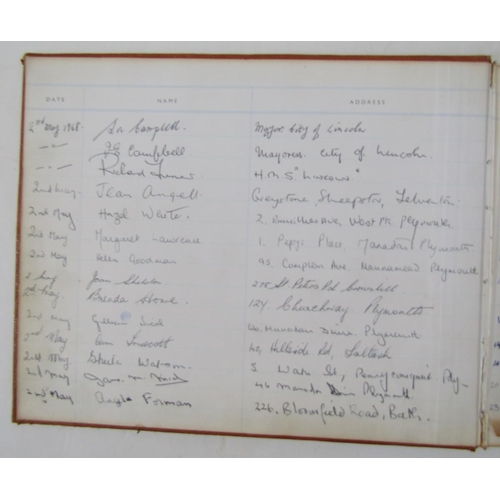 DATE NAME ADDRESS
2nd May 1968. Campbell. Mayor City of Lincoln
-"- Campbell Mayoress City of Lincoln.
-"- Richard H.M.S "Lincoln."
2nd May. Jean Angell Greystone Sheepstor, Yelverton.
2nd May Hazel White. 2. West Pk Plymouth.
2nd May Margaret Lawrence 1. Place, Manadon Plymouth
2nd May Helen Goodman 93. Compton Ave. Mannamead Plymouth
2 May Joan 218 St Peters Rd Crownhill
2nd May Brenda Stone 124 Churchway Plymouth
2nd May Gillian 40. Manadon Drive. Plymouth
2nd May Ann 40, Hillside Rd, Saltash
2nd May Sheila Watson. 5 St, Pennycomequick Ply-
2nd May 46 Manadon Drive Plymouth
2nd May Angela Forman 226. Bloomfield Road, Bath.